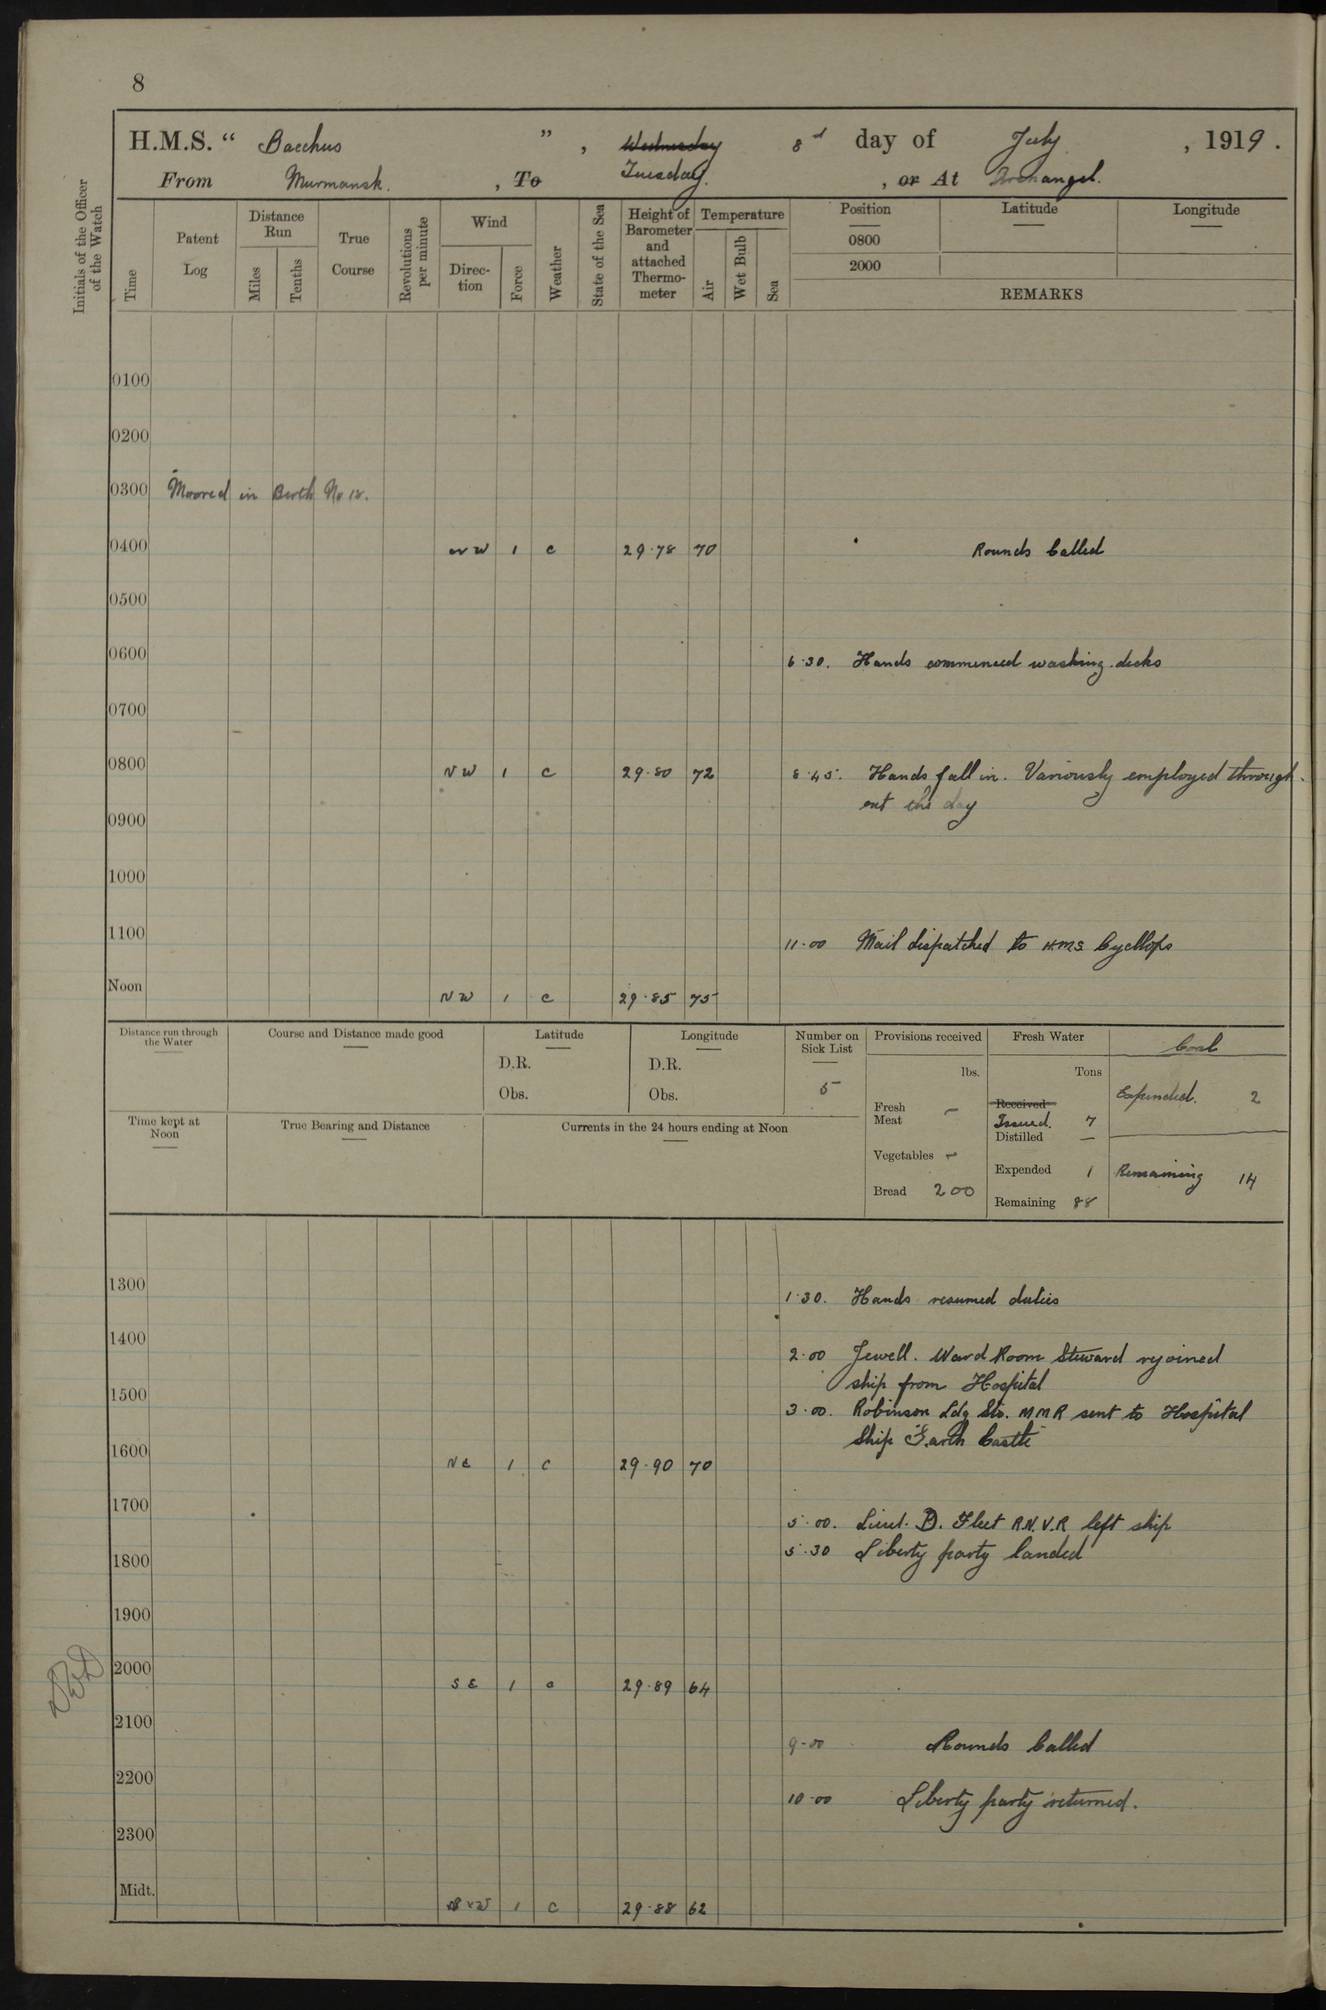 8
H.M.S. " Bacchus " , Wednesday 8d day of July , 1919 .
From Murmansk. , To Tuesday. , or At Archangel.
Initials of the Officer of the Watch
Time
Patent Log
Distance Run
Miles
Tenths
True Course
Revolutions per minute
Wind
Direction
Force
Weather
State of the Sea
Height of Barometer and attached Thermometer
Temperature
Air
Wet Bulb
Sea
Position Latitude Longitude
0800
2000
REMARKS
0100
0200
0300 Moored in Berth No 12.
0400 NW 1 c 29.78 70 Rounds Called
0500
0600
6.30. Hands commenced washing decks
0700
0800 NW 1 c 29.80 72 8.45. Hands fall in. Variously employed through-
out the day
0900
1000
1100 11.00 Mail dispatched to H.M.S. Cycllops
Noon NW 1 c 29.85 75
Distance run through the Water
Course and Distance made good
Latitude
D.R.
Obs.
Longitude
D.R.
Obs.
Number on Sick List
5
Provisions received
lbs.
Fresh Meat –
Vegetables –
Bread 200
Fresh Water
Tons
Received
Issued. 7
Distilled —
Expended 1
Remaining 88
Coal
Expended. 2
Remaining 14
Time kept at Noon
True Bearing and Distance
Currents in the 24 hours ending at Noon
1300 1.30. Hands resumed duties
1400 2.00 Jewell. Ward Room Steward rejoined
ship from Hospital
1500 3.00. Robinson Ldg Sto. M M R sent to Hospital
Ship "Garth Castle"
1600 NE 1 c 29.90 70
1700 5.00. Lieut. D. Fleet R.N.V.R left ship
5.30 Liberty party landed
1800
1900
2000 SE 1 o 29.89 64
2100 9.00 Rounds Called
2200 10.00 Liberty party returned.
2300
Midt. 1 c 29.88 62